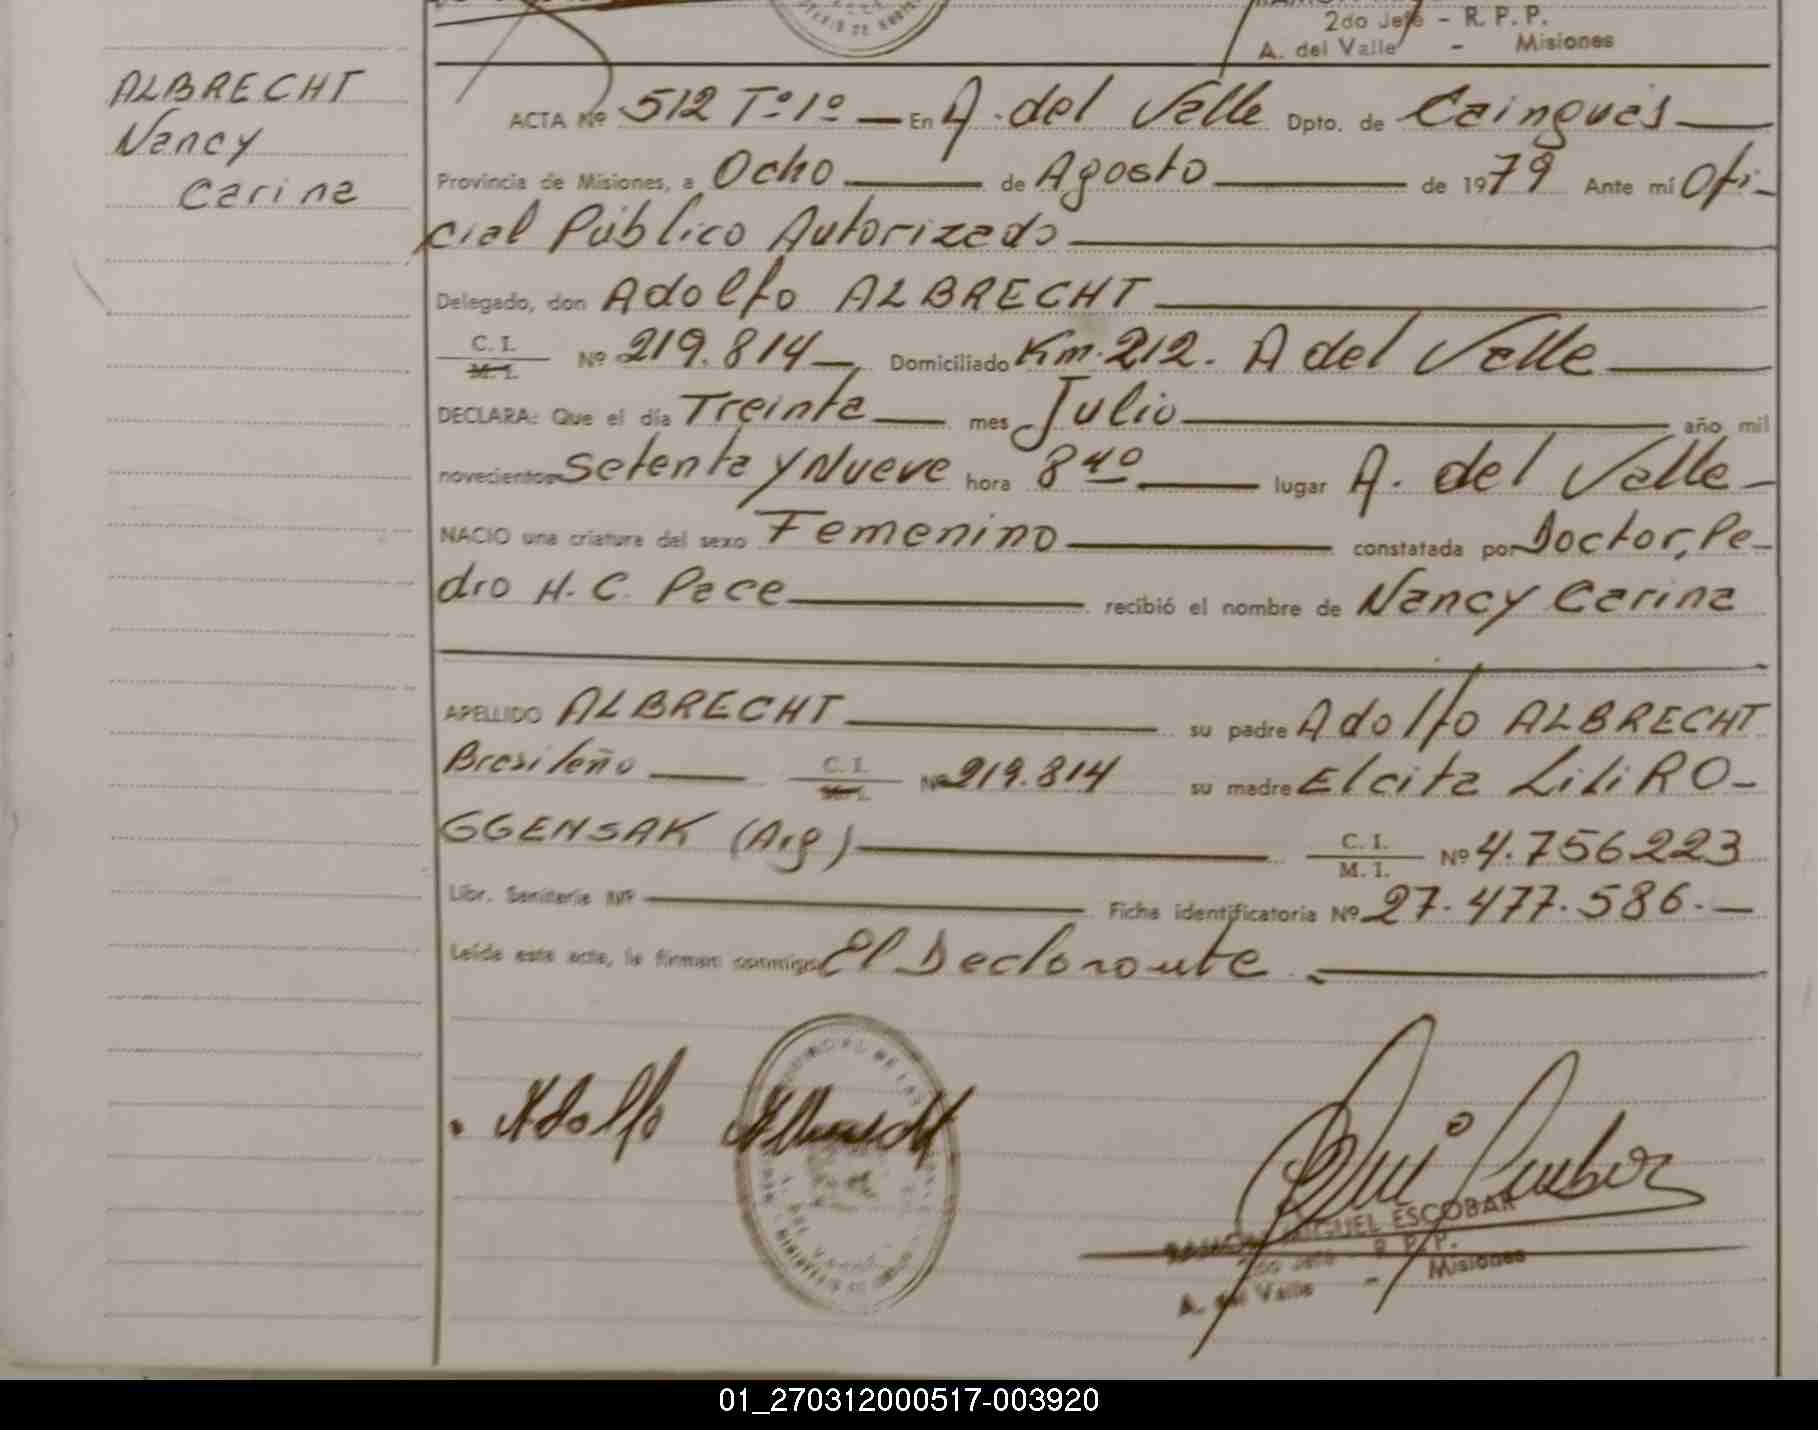 2do Jefe - R. P. P.
A. del Valle - Misiones
ALBRECHT
Nancy
Carina
ACTA Nº 512 Tº 1º — En A. del Valle Dpto. de Cainguás
Provincia de Misiones, a Ocho de Agosto de 1979 Ante mí Ofi-
cial Público Autorizado
Delegado, don Adolfo ALBRECHT
C. I.
M. I.
Nº 219.814 — Domiciliado Km. 212. A del Valle
DECLARA: Que el día Treinta mes Julio año mil
novecientos Setenta y Nueve hora 8 40 lugar A. del Valle -
NACIO una criatura del sexo Femenino constatada por Doctor, Pe-
dro H. C. Pace recibió el nombre de Nancy Carina
APELLIDO ALBRECHT su padre Adolfo ALBRECHT
Brasileño C. I. M. I. Nº 219.814 su madre Elcita Lili RO-
GGENSAK (Arg) C. I. M. I. Nº 4.756223
Libr. Sanitaria Nº Ficha identificatoria Nº 27.477.586. —
Leída este acta, la firman conmigo El Declarante
Adolfo Albrecht
MIGUEL ESCOBAR
2do Jefe R. P. P.
A. del Valle - Misiones
01_270312000517-003920